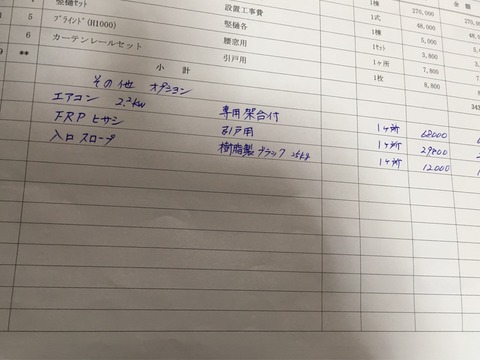 金額
竪樋ｾｯﾄ 設置工事費 1棟 270,000 270,00
5 ﾌﾞﾗｲﾝﾄﾞ(H1000) 竪樋各 1式 48,000 48,0
6 カーテンレールセット 腰窓用 1棟 5,000
9 ** 引戸用 1ｾｯﾄ 3,800
小計 1ヶ所 7,800
1枚 8,800
343
その他 オプション
エアコン 2.2kw 専用架台付 1ヶ所 68000
FRPヒサシ 引戸用 1ヶ所 29800
入口スロープ 樹脂製ブラック 25kg 1ヶ所 12000